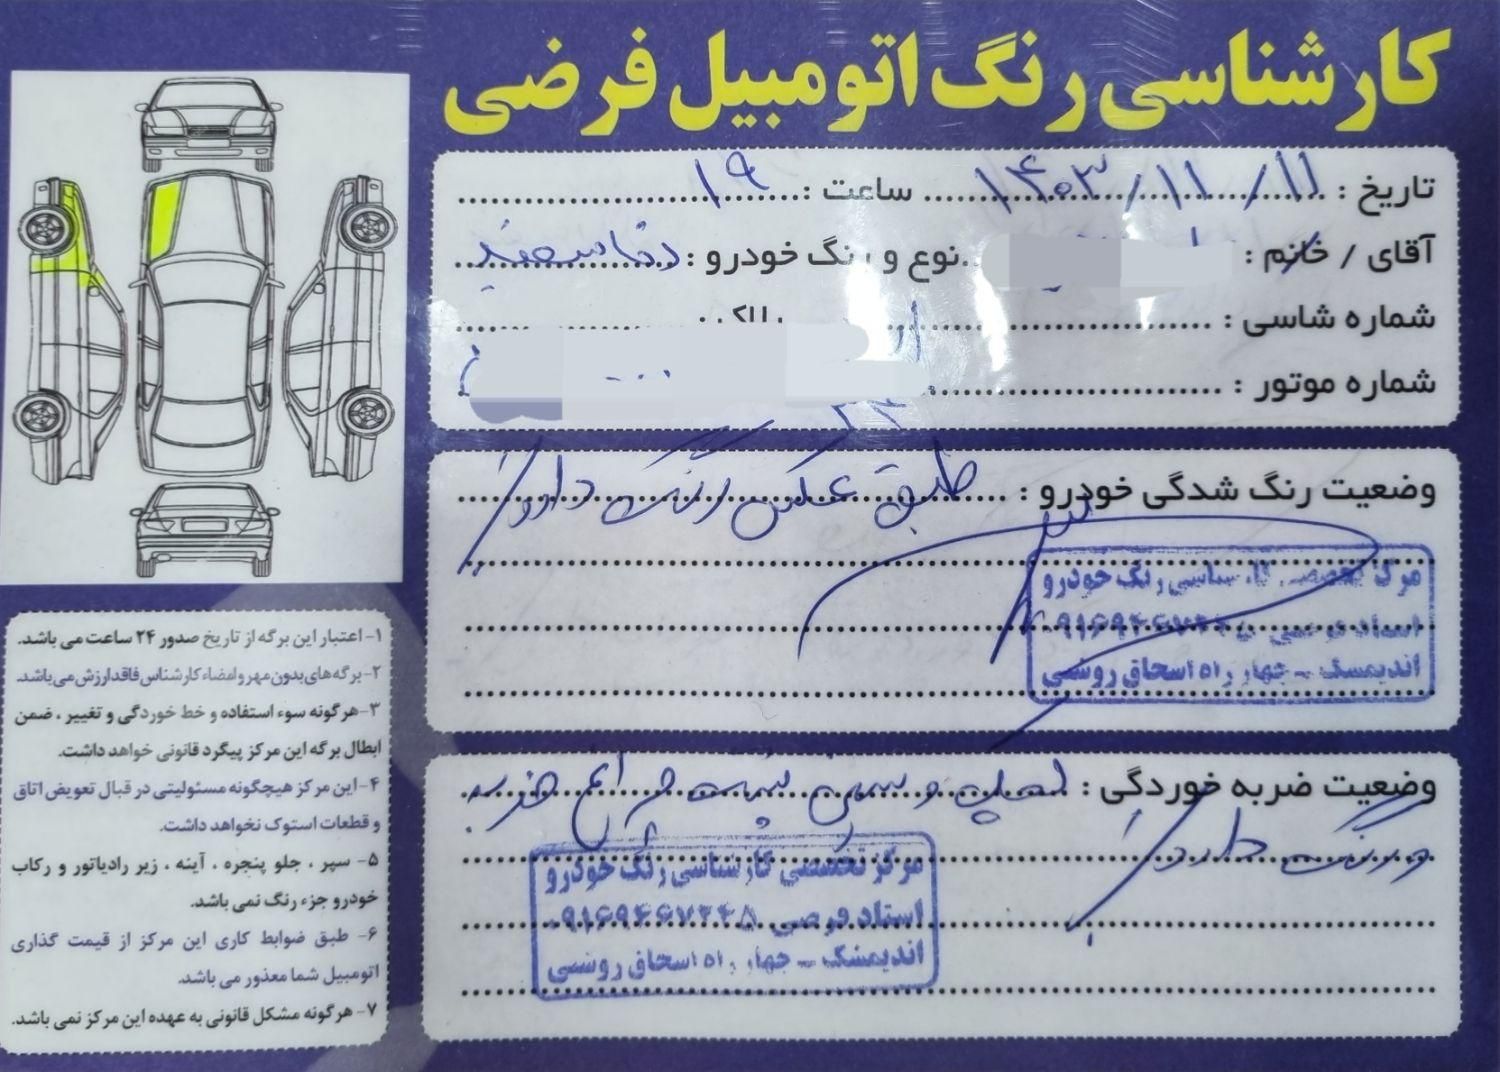 کارشناسی رنگ اتومبیل فرضی
تاریخ : ۱۴۰۳/۱۱/۱۱ ساعت : ۱۹
آقای / خانم : نوع و رنگ خودرو : دنا سفید
شماره شاسی : پلاک :
شماره موتور :
وضعیت رنگ شدگی خودرو : طبق عکس رنگ دارد
مرکز تخصصی کارشناسی رنگ خودرو
استاد فرضی
اندیمشک - چهار راه اسحاق روشنی
وضعیت ضربه خوردگی : ضربه
و رنگ دارد
مرکز تخصصی کارشناسی رنگ خودرو
استاد فرضی
اندیمشک - چهار راه اسحاق روشنی
۱- اعتبار این برگه از تاریخ صدور ۲۴ ساعت می باشد.
۲- برگه های بدون مهر و امضاء کارشناس فاقد ارزش می باشد.
۳- هرگونه سوء استفاده و خط خوردگی و تغییر ، ضمن
ابطال برگه این مرکز پیگرد قانونی خواهد داشت.
۴- این مرکز هیچگونه مسئولیتی در قبال تعویض اتاق
و قطعات استوک نخواهد داشت.
۵- سپر ، جلو پنجره ، آینه ، زیر رادیاتور و رکاب
خودرو جزء رنگ نمی باشد.
۶- طبق ضوابط کاری این مرکز از قیمت گذاری
اتومبیل شما معذور می باشد.
۷- هرگونه مشکل قانونی به عهده این مرکز نمی باشد.